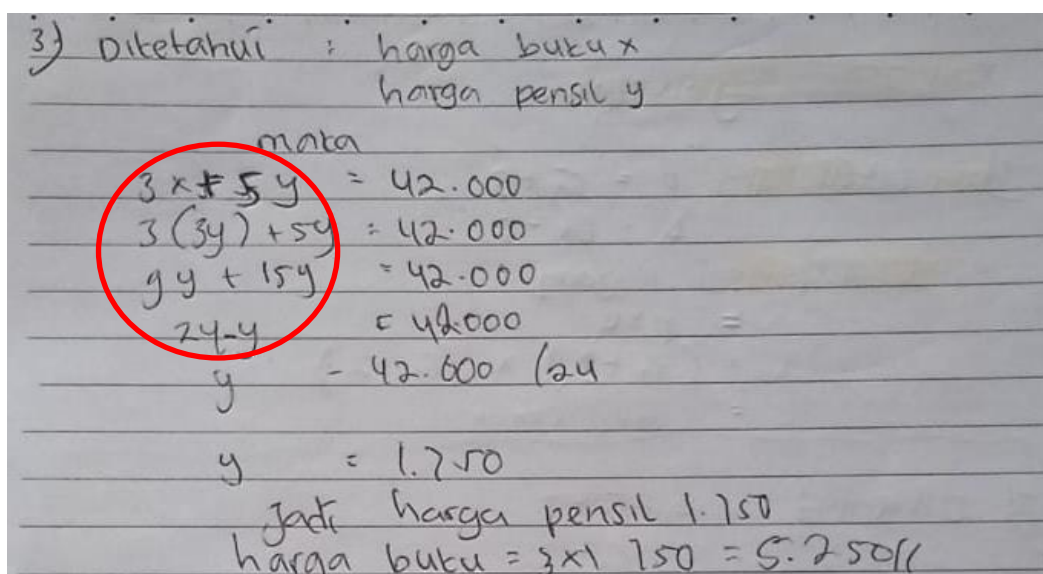 3) Diketahui : harga buku x
harga pensil y
maka
3x + 5y = 42.000
3(3y) + 5y = 42.000
9y + 15y = 42.000
24y = 42.000
y = 42.000 /24
y = 1.750
Jadi harga pensil 1.750
harga buku = 3x1 750 = 5.250//